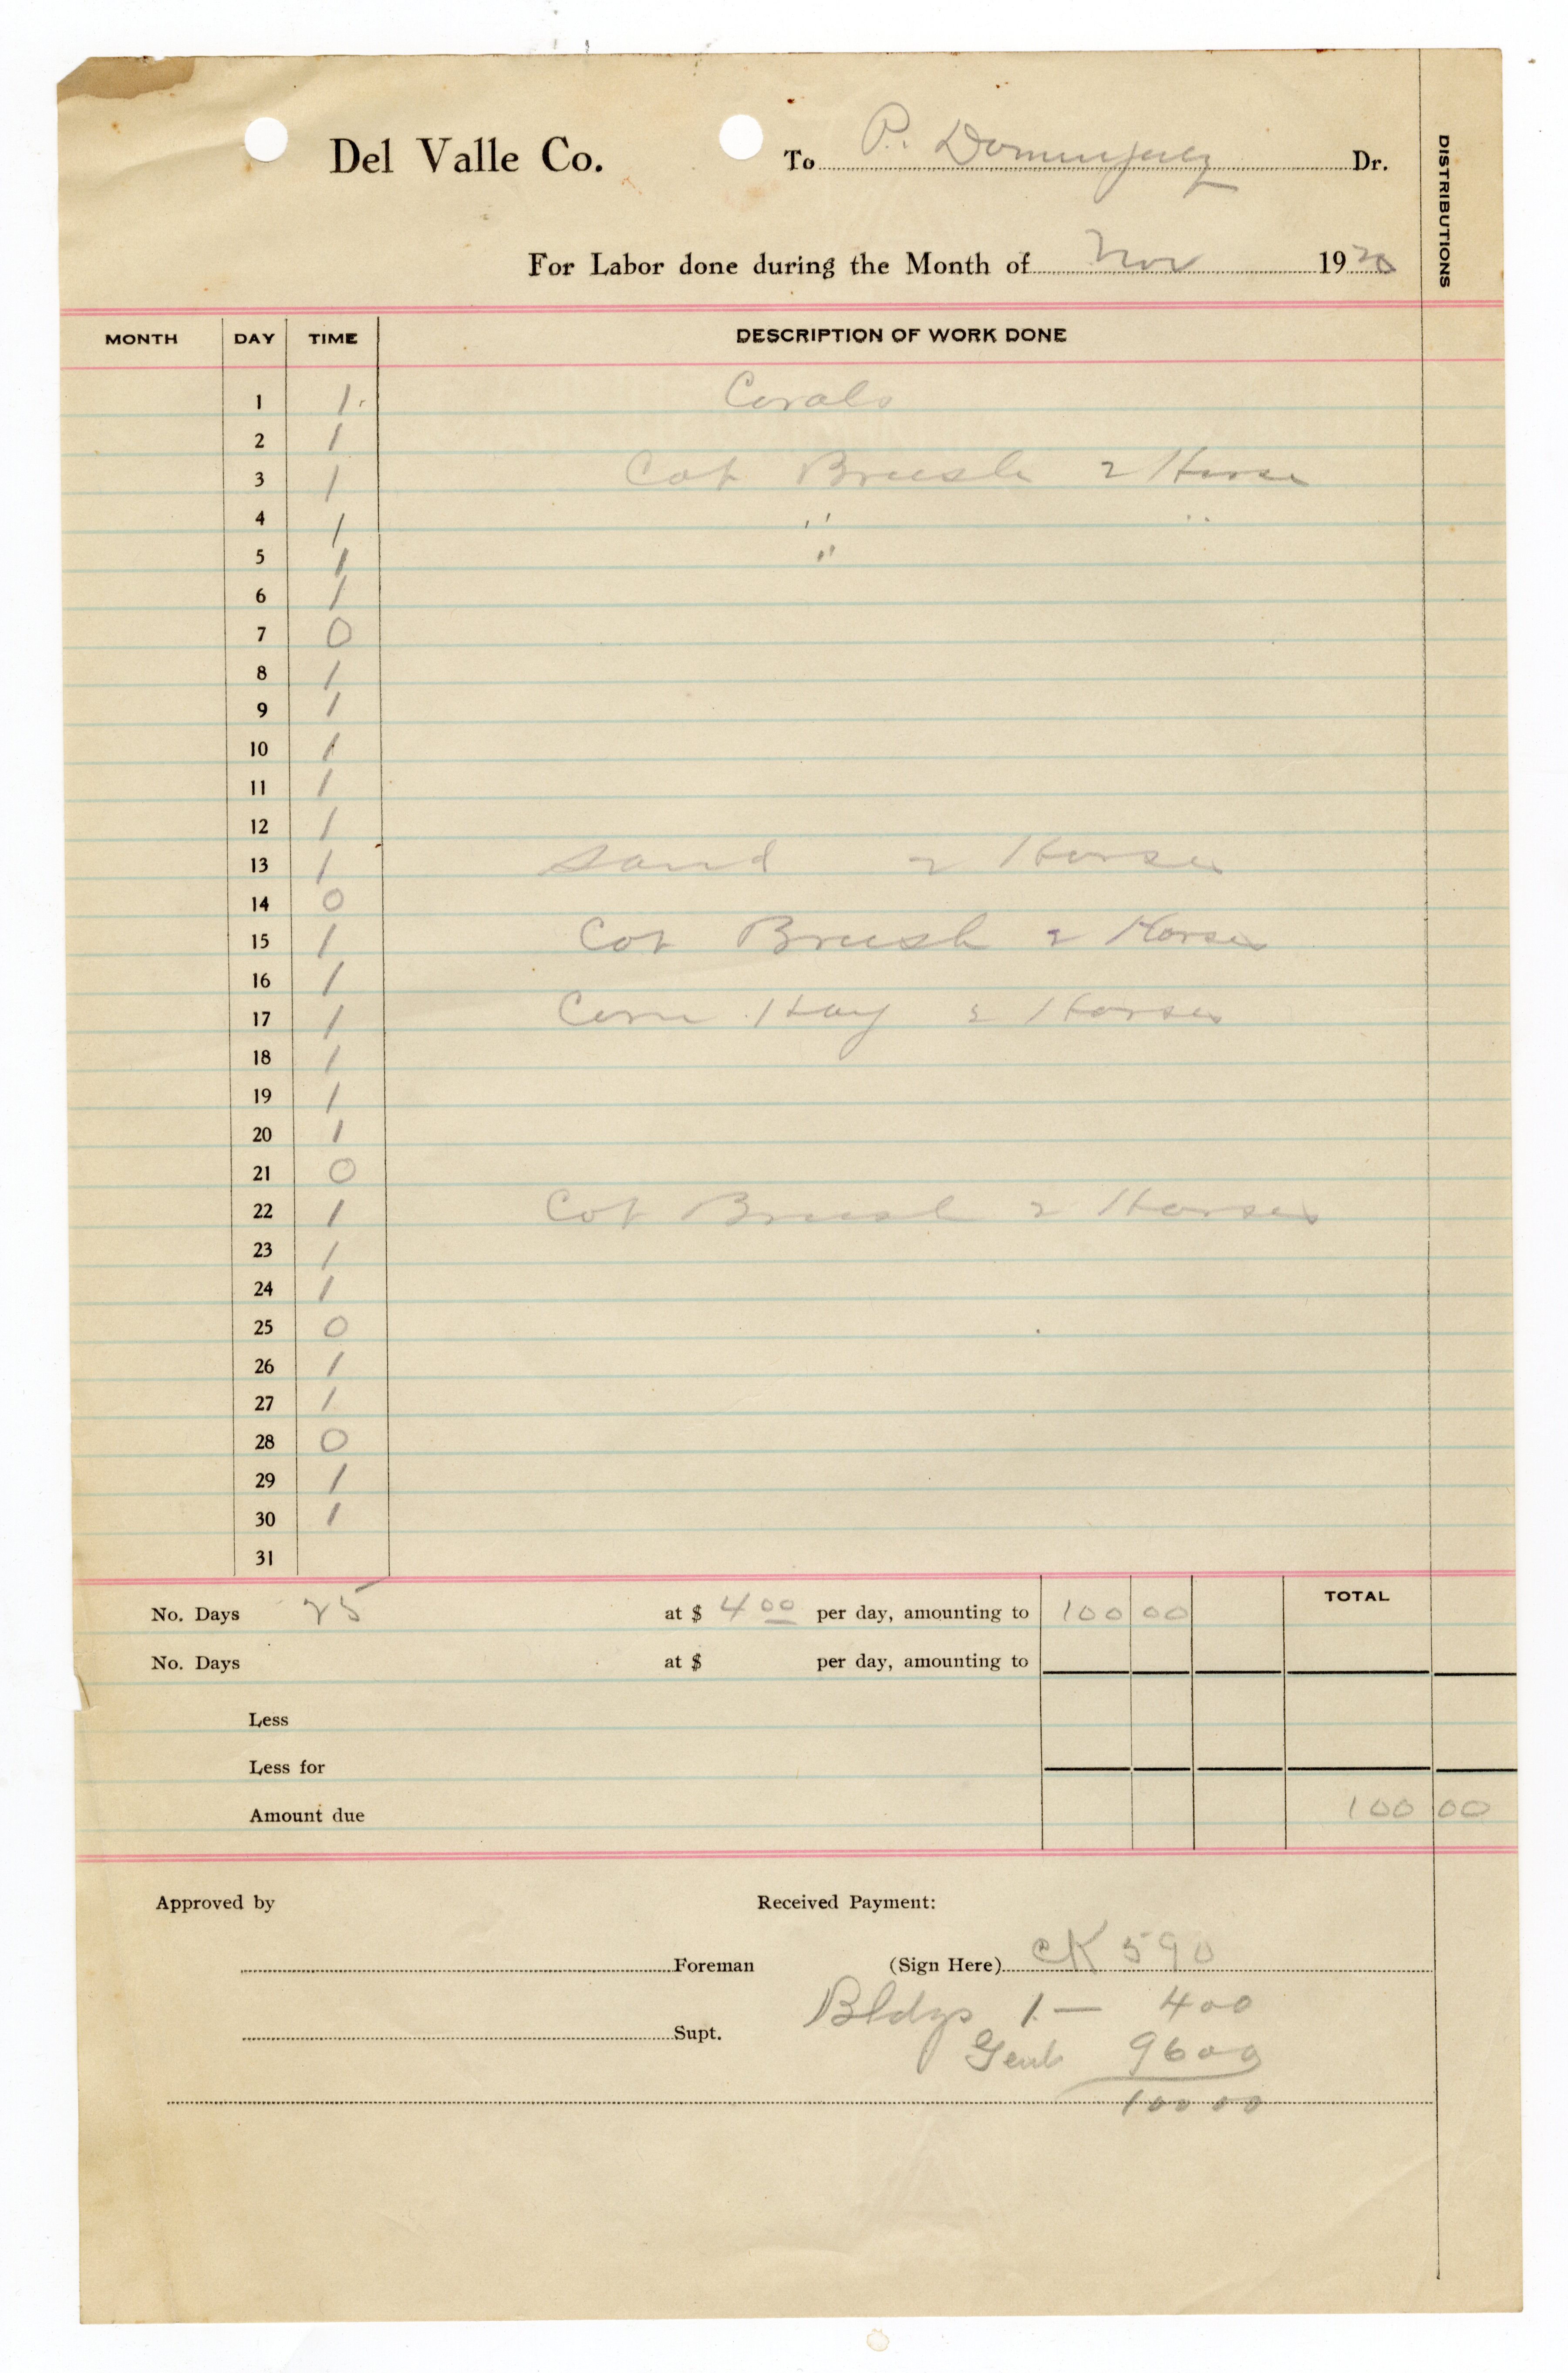 Del Valle Co. To P. Dominguez Dr.
DISTRIBUTIONS
For Labor done during the Month of Nov 1920
MONTH DAY TIME DESCRIPTION OF WORK DONE
1 1 Corals
2 1
3 1 Cot Brush 2 Horse
4 1 " "
5 1 "
6 1
7 0
8 1
9 1
10 1
11 1
12 1
13 1 Sand 2 Horses
14 0
15 1 Cot Brush 2 Horses
16 1
17 1 Corn Hay 2 Horses
18 1
19 1
20 1
21 0
22 1 Cot Brush 2 Horses
23 1
24 1
25 0
26 1
27 1
28 0
29 1
30 1
31
TOTAL
No. Days 25 at $ 4 00 per day, amounting to 100 00
No. Days at $ per day, amounting to
Less
Less for
Amount due 100 00
Approved by Received Payment:
Foreman (Sign Here) CK 590
Bldgs 1 — 400
Supt.
Genl 9600
10000